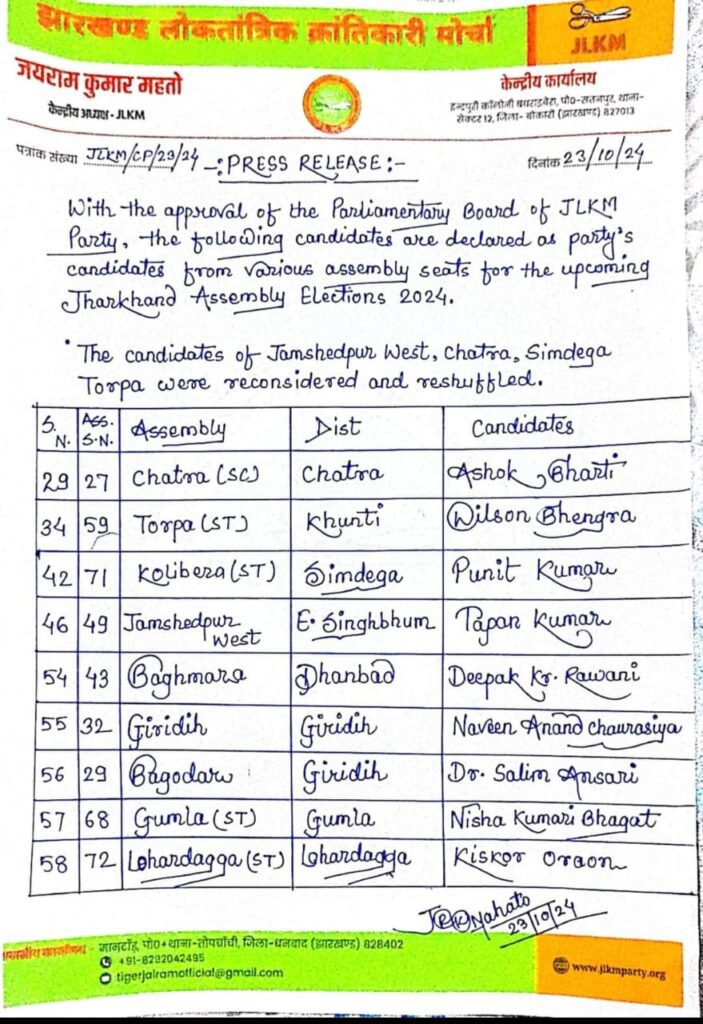 झारखण्ड लोकतांत्रिक क्रांतिकारी मोर्चा
JLKM
जयराम कुमार महतो
केन्द्रीय अध्यक्ष - JLKM
केन्द्रीय कार्यालय
सेक्टर 12, जिला- बोकारो (झारखण्ड) 827013
पत्रांक संख्या JLKM/CP/23/24 -: PRESS RELEASE :- दिनांक 23/10/24
With the approval of the Parliamentary Board of JLKM
Party, the following candidates are declared as party's
candidates from various assembly seats for the upcoming
Jharkhand Assembly Elections 2024.
• The candidates of Jamshedpur West, Chatra, Simdega
Torpa were reconsidered and reshuffled.
S. N. Ass. S.N. Assembly Dist Candidates
29 27 Chatra (SC) Chatra Ashok Bharti
34 59 Torpa (ST) Khunti Wilson Bhengra
42 71 Kolibera (ST) Simdega Punit Kumar
46 49 Jamshedpur West E. Singhbhum Papan Kumar
54 43 Baghmara Dhanbad Deepak Kr. Rawani
55 32 Giridih Giridih Naveen Anand Chaurasiya
56 29 Bagodar Giridih Dr. Salim Ansari
57 68 Gumla (ST) Gumla Nisha Kumari Bhagat
58 72 Lohardagga (ST) Lohardagga Kiskor Oraon
23/10/24
मानटाँड़, पो0+थाना-तोपचाँची, जिला-धनबाद (झारखण्ड) 828402
+91-8292042495
tigerjairamofficial@gmail.com
www.jlkmparty.org